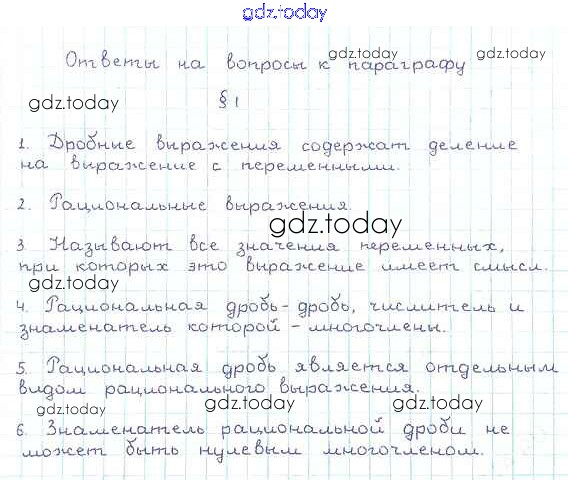 gdz.today
Ответы на вопросы к параграфу
gdz.today
gdz.today
gdz.today
§ 1
1. Дробные выражения содержат деление
на выражение с переменными.
2. Рациональные выражения.
gdz.today
3. Называют все значения переменных,
при которых это выражение имеет смысл.
gdz.today
4. Рациональная дробь - дробь, числитель и
знаменатель которой - многочлены.
5. Рациональная дробь является отдельным
видом рационального выражения.
gdz.today
gdz.today
gdz.today
6. Знаменатель рациональной дроби не
может быть нулевым многочленом.